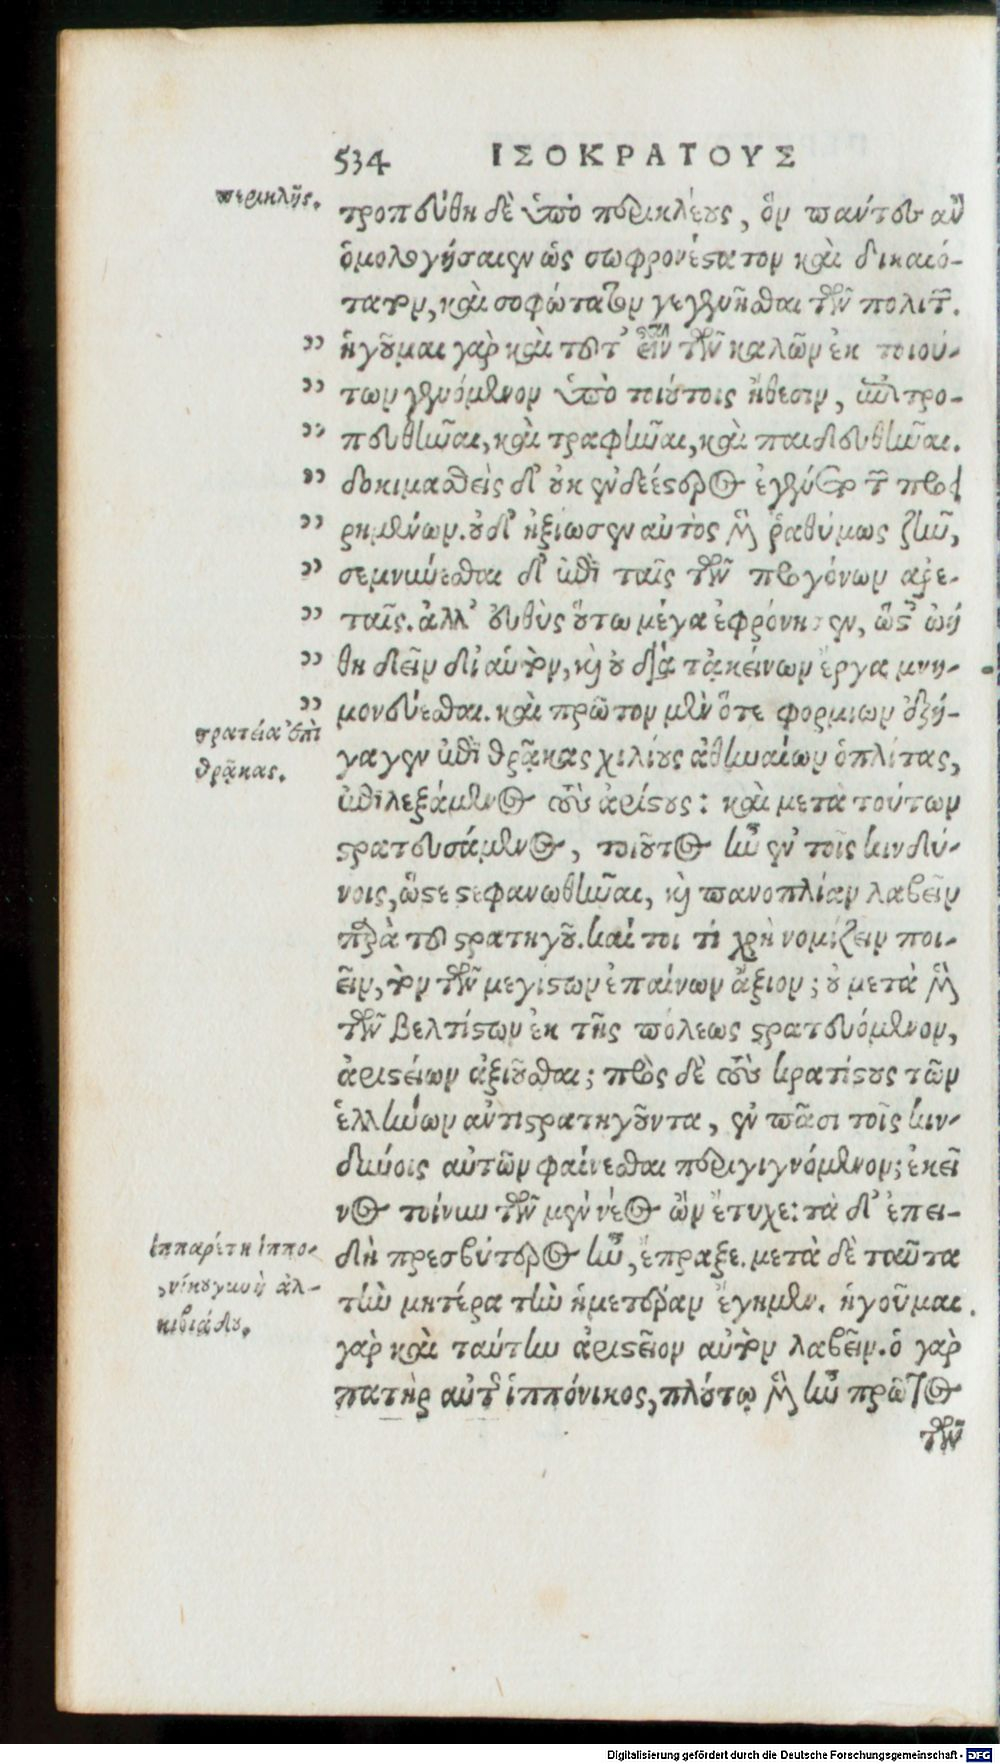 534 ΙΣΟΚΡΑΤΟΥΣ
περικλῆς.
τροπεύθη δὲ ὑπὸ περικλέους, ὃν πάντες ἂν
ὁμολογήσαιεν ὡς σωφρονέστατον καὶ δικαιό-
τατον, καὶ σοφώτατον γεγενῆσθαι τῶν πολιτῶν.
ἡγοῦμαι γὰρ καὶ τοῦτ' εἶναι τῶν καλῶν ἐκ τοιού-
των γενόμενον ὑπὸ τοιούτοις ἤθεσιν, ἐπιτρο-
πευθῆναι, καὶ τραφῆναι, καὶ παιδευθῆναι.
δοκιμασθεὶς δ' οὐκ ἐνδεέστερος ἐγένετο τῶν προει
ρημένων. οὐδ' ἠξίωσεν αὐτὸς μὲν ῥαθύμως ζῆν,
σεμνύνεσθαι δ' ἐπὶ ταῖς τῶν προγόνων ἀρε-
ταῖς. ἀλλ' εὐθὺς οὕτω μέγα ἐφρόνησεν, ὥστ' ᾠή
θη δεῖν δι' αὑτὸν, καὶ οὐ διὰ τἀκείνων ἔργα μνη-
μονεύεσθαι. καὶ πρῶτον μὲν ὅτε φορμίων ἐξή-
στρατεία ἐπὶ
θρᾷκας.
γαγεν ἐπὶ θρᾷκας χιλίους ἀθηναίων ὁπλίτας,
ἐπιλεξάμενος τοὺς ἀρίστους: καὶ μετὰ τούτων
στρατευσάμενος, τοιοῦτος ἦν ἐν τοῖς κινδύ-
νοις, ὥστε στεφανωθῆναι, καὶ πανοπλίαν λαβεῖν
παρὰ τοῦ στρατηγοῦ. καί τοι τί χρὴ νομίζειν ποι-
εῖν, τὸν τῶν μεγίστων ἐπαίνων ἄξιον; οὐ μετὰ μὲν
τῶν βελτίστων ἐκ τῆς πόλεως στρατευόμενον,
ἀριστείων ἀξιοῦσθαι; πρὸς δὲ τοὺς κρατίστους τῶν
ἑλλήνων ἀντιστρατηγοῦντα, ἐν πᾶσι τοῖς κιν-
δύνοις αὐτῶν φαίνεσθαι περιγιγνόμενον; ἐκεῖ
νος τοίνυν τῶν μὲν νέος ὢν ἔτυχε: τὰ δ' ἐπει-
ἱππαρέτη ἱππο-
νίκου γυνὴ ἀλ-
κιβιάδου.
δὴ πρεσβύτερος ἦν, ἔπραξε. μετὰ δὲ ταῦτα
τὴν μητέρα τὴν ἡμετέραν ἔγημεν. ἡγοῦμαι
γὰρ καὶ ταύτην ἀριστεῖον αὐτὸν λαβεῖν. ὁ γὰρ
πατὴρ αὐτῆς ἱππόνικος, πλούτῳ μὲν ἦν πρῶτος
τῶν
Digitalisierung gefördert durch die Deutsche Forschungsgemeinschaft - DFG